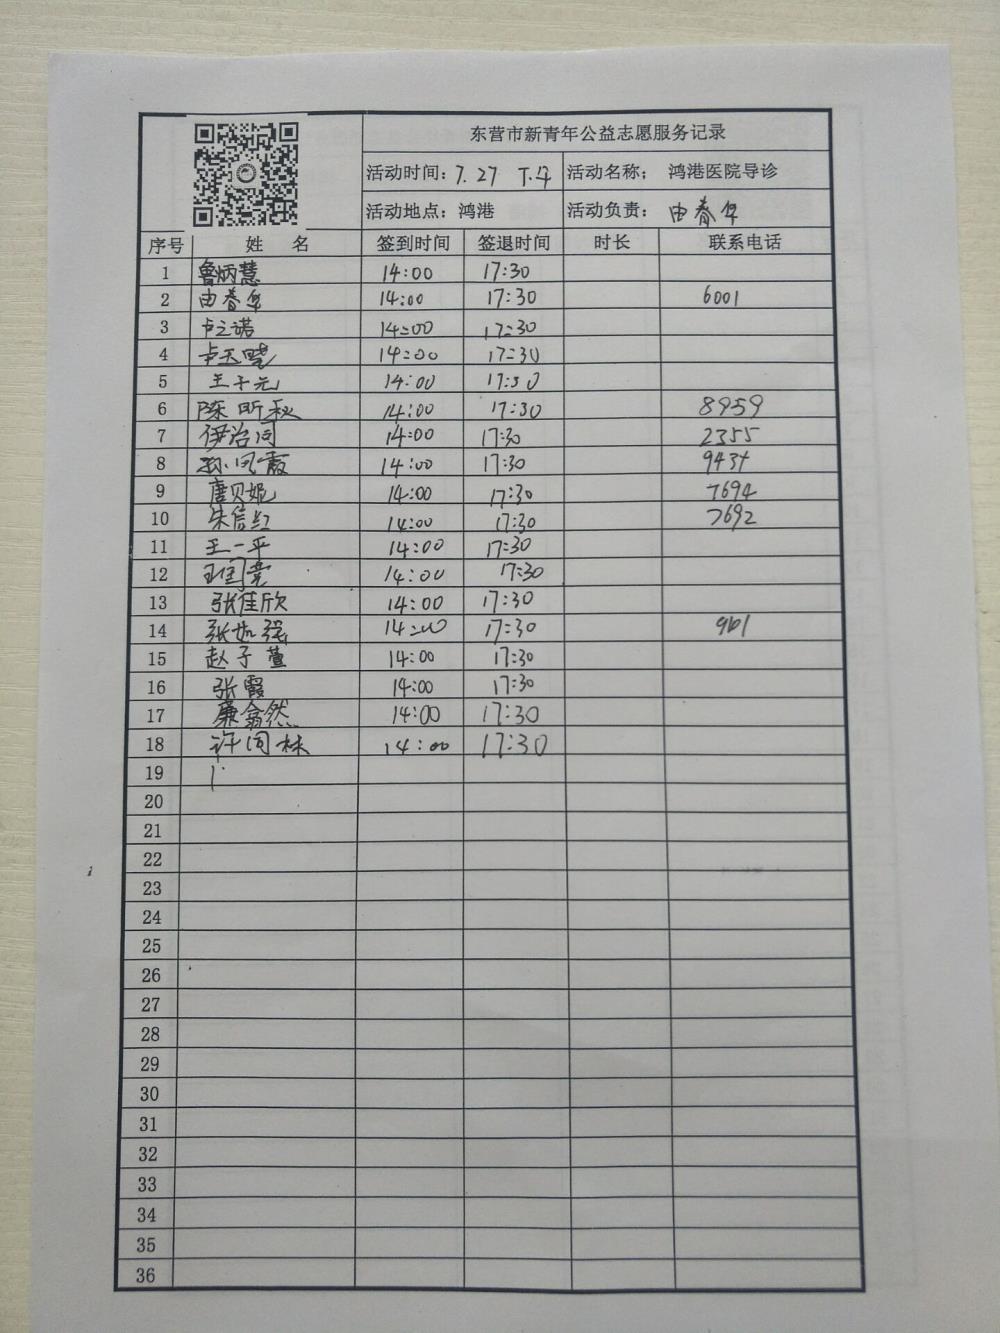 东营市新青年公益志愿服务记录
活动时间：7.27 下午 活动名称； 鸿港医院导诊
活动地点：鸿港 活动负责： 由春年
序号 姓 名 签到时间 签退时间 时长 联系电话
1 鲁炳慧 14:00 17:30
2 由春年 14:00 17:30 6001
3 卢之诺 14:00 17:30
4 卢天晓 14:00 17:30
5 王子元 14:00 17:30
6 陈昕秋 14:00 17:30 8959
7 伊治同 14:00 17:30 2355
8 孙凤霞 14:00 17:30 9434
9 唐贝妮 14:00 17:30 7694
10 朱信红 14:00 17:30 7692
11 王一平 14:00 17:30
12 14:00 17:30
13 张佳欣 14:00 17:30
14 张如强 14:00 17:30 961
15 赵子萱 14:00 17:30
16 张霞 14:00 17:30
17 廉翕然 14:00 17:30
18 许同林 14:00 17:30
19
20
21
22
23
24
25
26
27
28
29
30
31
32
33
34
35
36